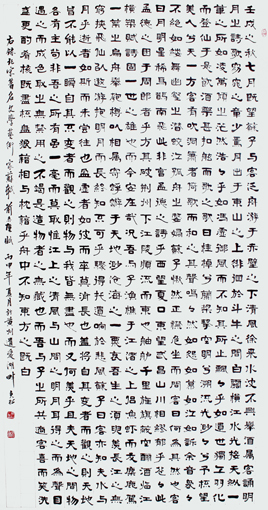 壬戌之秋七月既望蘇子與客泛舟游于赤壁之下清風徐來水波不興舉酒屬客誦明
月之詩歌窈窕之章少焉月出于東山之上徘徊於斗牛之間白露橫江水光接天縱一
葦之所如凌萬頃之茫然浩浩乎如馮虛御風而不知其所止飄飄乎如遺世獨立羽化
而登仙于是飲酒樂甚扣舷而歌之歌曰桂棹兮蘭槳擊空明兮溯流光渺渺兮予懷望
美人兮天一方客有吹洞簫者倚歌而和之其聲嗚嗚然如怨如慕如泣如訴餘音裊裊
不絕如縷舞幽壑之潛蛟泣孤舟之嫠婦蘇子愀然正襟危坐而問客曰何為其然也客
曰月明星稀烏鵲南飛此非曹孟德之詩乎西望夏口東望武昌山川相繆鬱乎蒼蒼此非
孟德之困于周郎者乎方其破荊州下江陵順流而東也舳艫千里旌旗蔽空釃酒臨江
橫槊賦詩固一世之雄也而今安在哉況吾與子漁樵于江渚之上侶魚蝦而友麋鹿駕
一葉之扁舟舉匏樽以相屬寄蜉蝣于天地渺滄海之一粟哀吾生之須臾羨長江之無
窮挾飛仙以遨遊抱明月而長終知不可乎驟得託遺響於悲風蘇子曰客亦知夫水與
月乎逝者如斯而未嘗往也盈虛者如彼而卒莫消長也蓋將自其變者而觀之則天地
曾不能以一瞬自其不變者而觀之則物與我皆無盡也而又何羨乎且夫天地之間物
各有主苟非吾之所有雖一毫而莫取惟江上之清風與山間之明月耳得之而為聲目
遇之而成色取之無禁用之不竭是造物者之無盡藏也而吾與子之所共適客喜而笑洗
盞更酌肴核既盡杯盤狼籍相與枕藉乎舟中不知東方之既白
右錄北宋著名文學家蘇軾前赤壁賦丙申年夏月於黃州遺愛湖畔